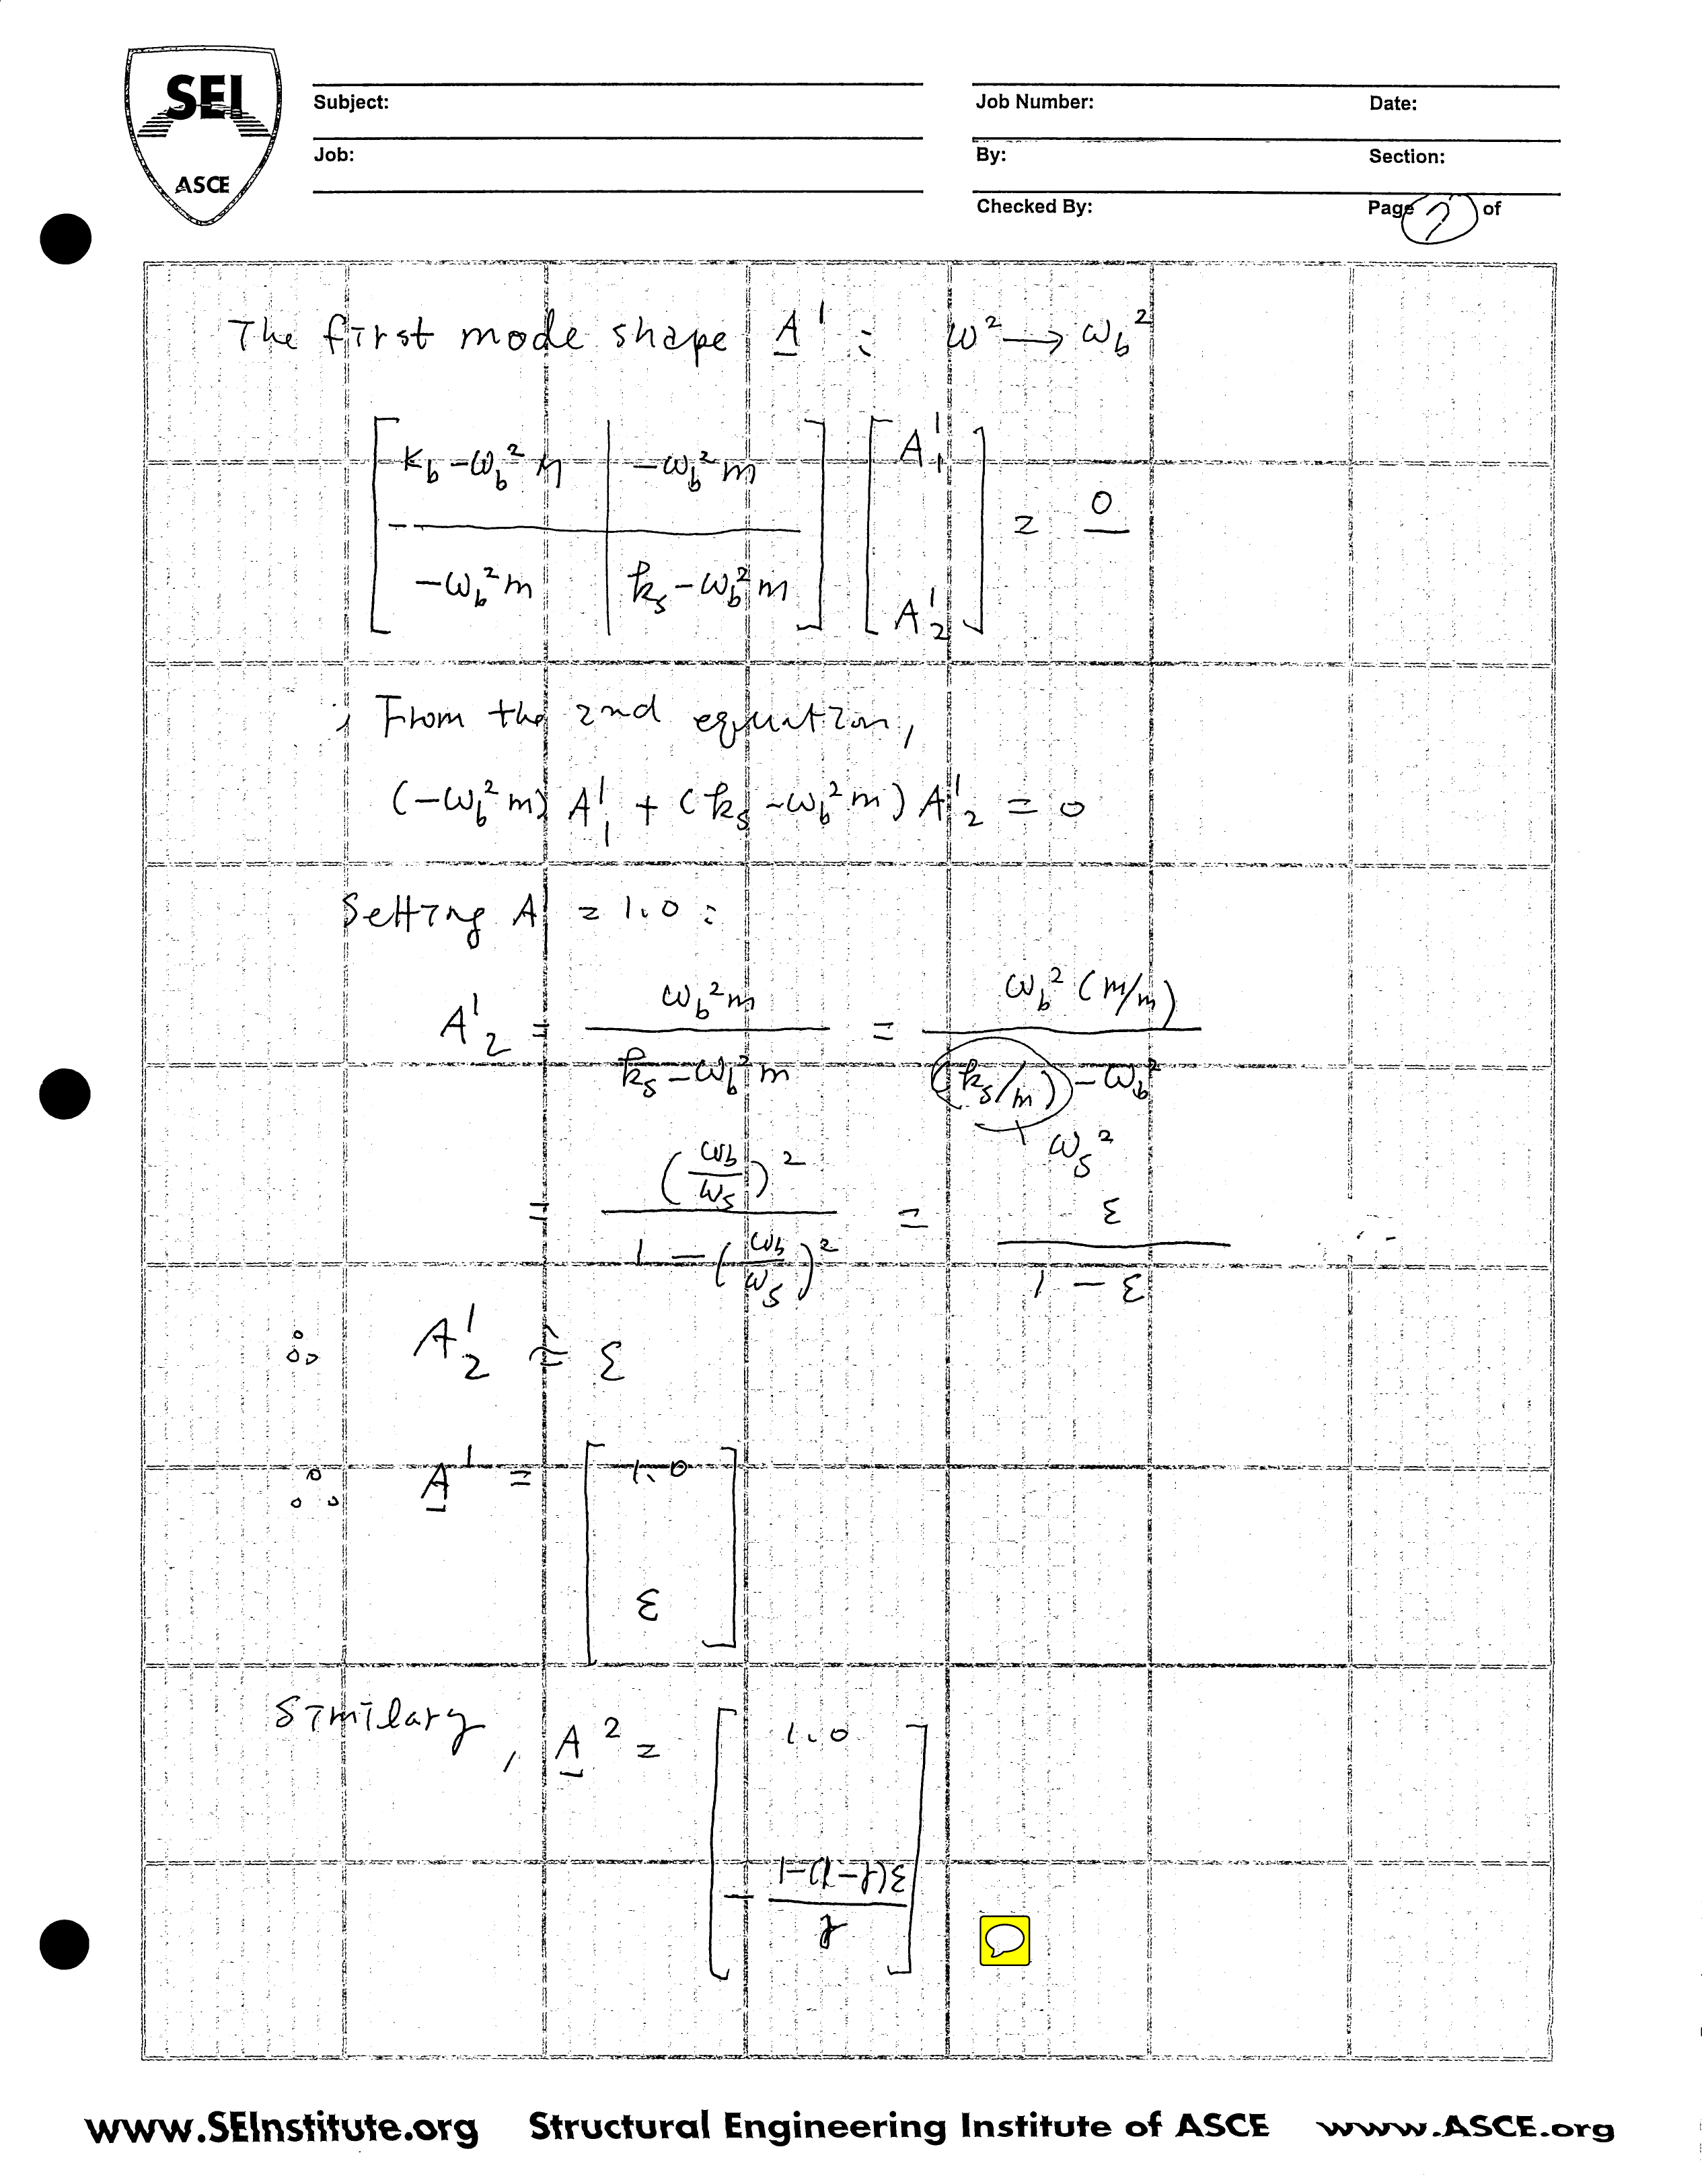 SEI
ASCE
Subject:
Job:
Job Number:
Date:
By:
Section:
Checked By:
Page 7 of
The first mode shape A¹ : ω² → ω_b²
[ k_b - ω_b² M | -ω_b² m ] [ A¹₁ ]
= 0
[ -ω_b² m | k_s - ω_b² m ] [ A¹₂ ]
; From the 2nd equation,
(-ω_b² m) A¹₁ + (k_s - ω_b² m) A¹₂ = 0
Setting A¹ = 1.0 :
A¹₂ = ω_b² m / (k_s - ω_b² m) = ω_b² (m/m) / ((k_s/m) - ω_b²)
ω_s²
= (ω_b/ω_s)² / (1 - (ω_b/ω_s)²) = ε / (1 - ε)
∴ A¹₂ ≈ ε
∴ A¹ = [ 1.0
ε ]
Similary, A² = [ 1.0
- (1-(1-γ)ε) / γ ]
www.SEInstitute.org Structural Engineering Institute of ASCE www.ASCE.org